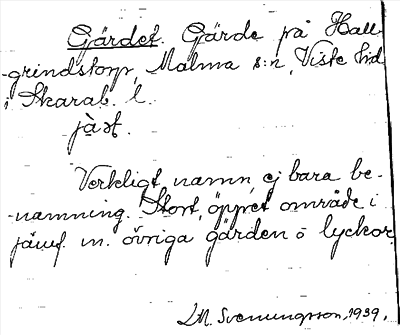 Gärdet. Gärde på Hall-
grindstorp, Malma s:n, Viste hd
i Skarab. l.
Verkligt namn, ej bara be-
nämning. Stort, öppet område i
jämf. m. övriga gärden o lyckor
M. Svenungsson, 1939.